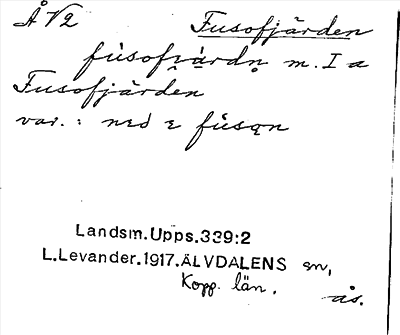 Å V2 Fusofjärden
fùsofi̯à̤rdn̥ m. I a
Fusofjärden
var. : ned ε fùsɑn
Landsm.Upps.339:2
L.Levander.1917.ÄLVDALENS sn,
Kopp. län.
ås.